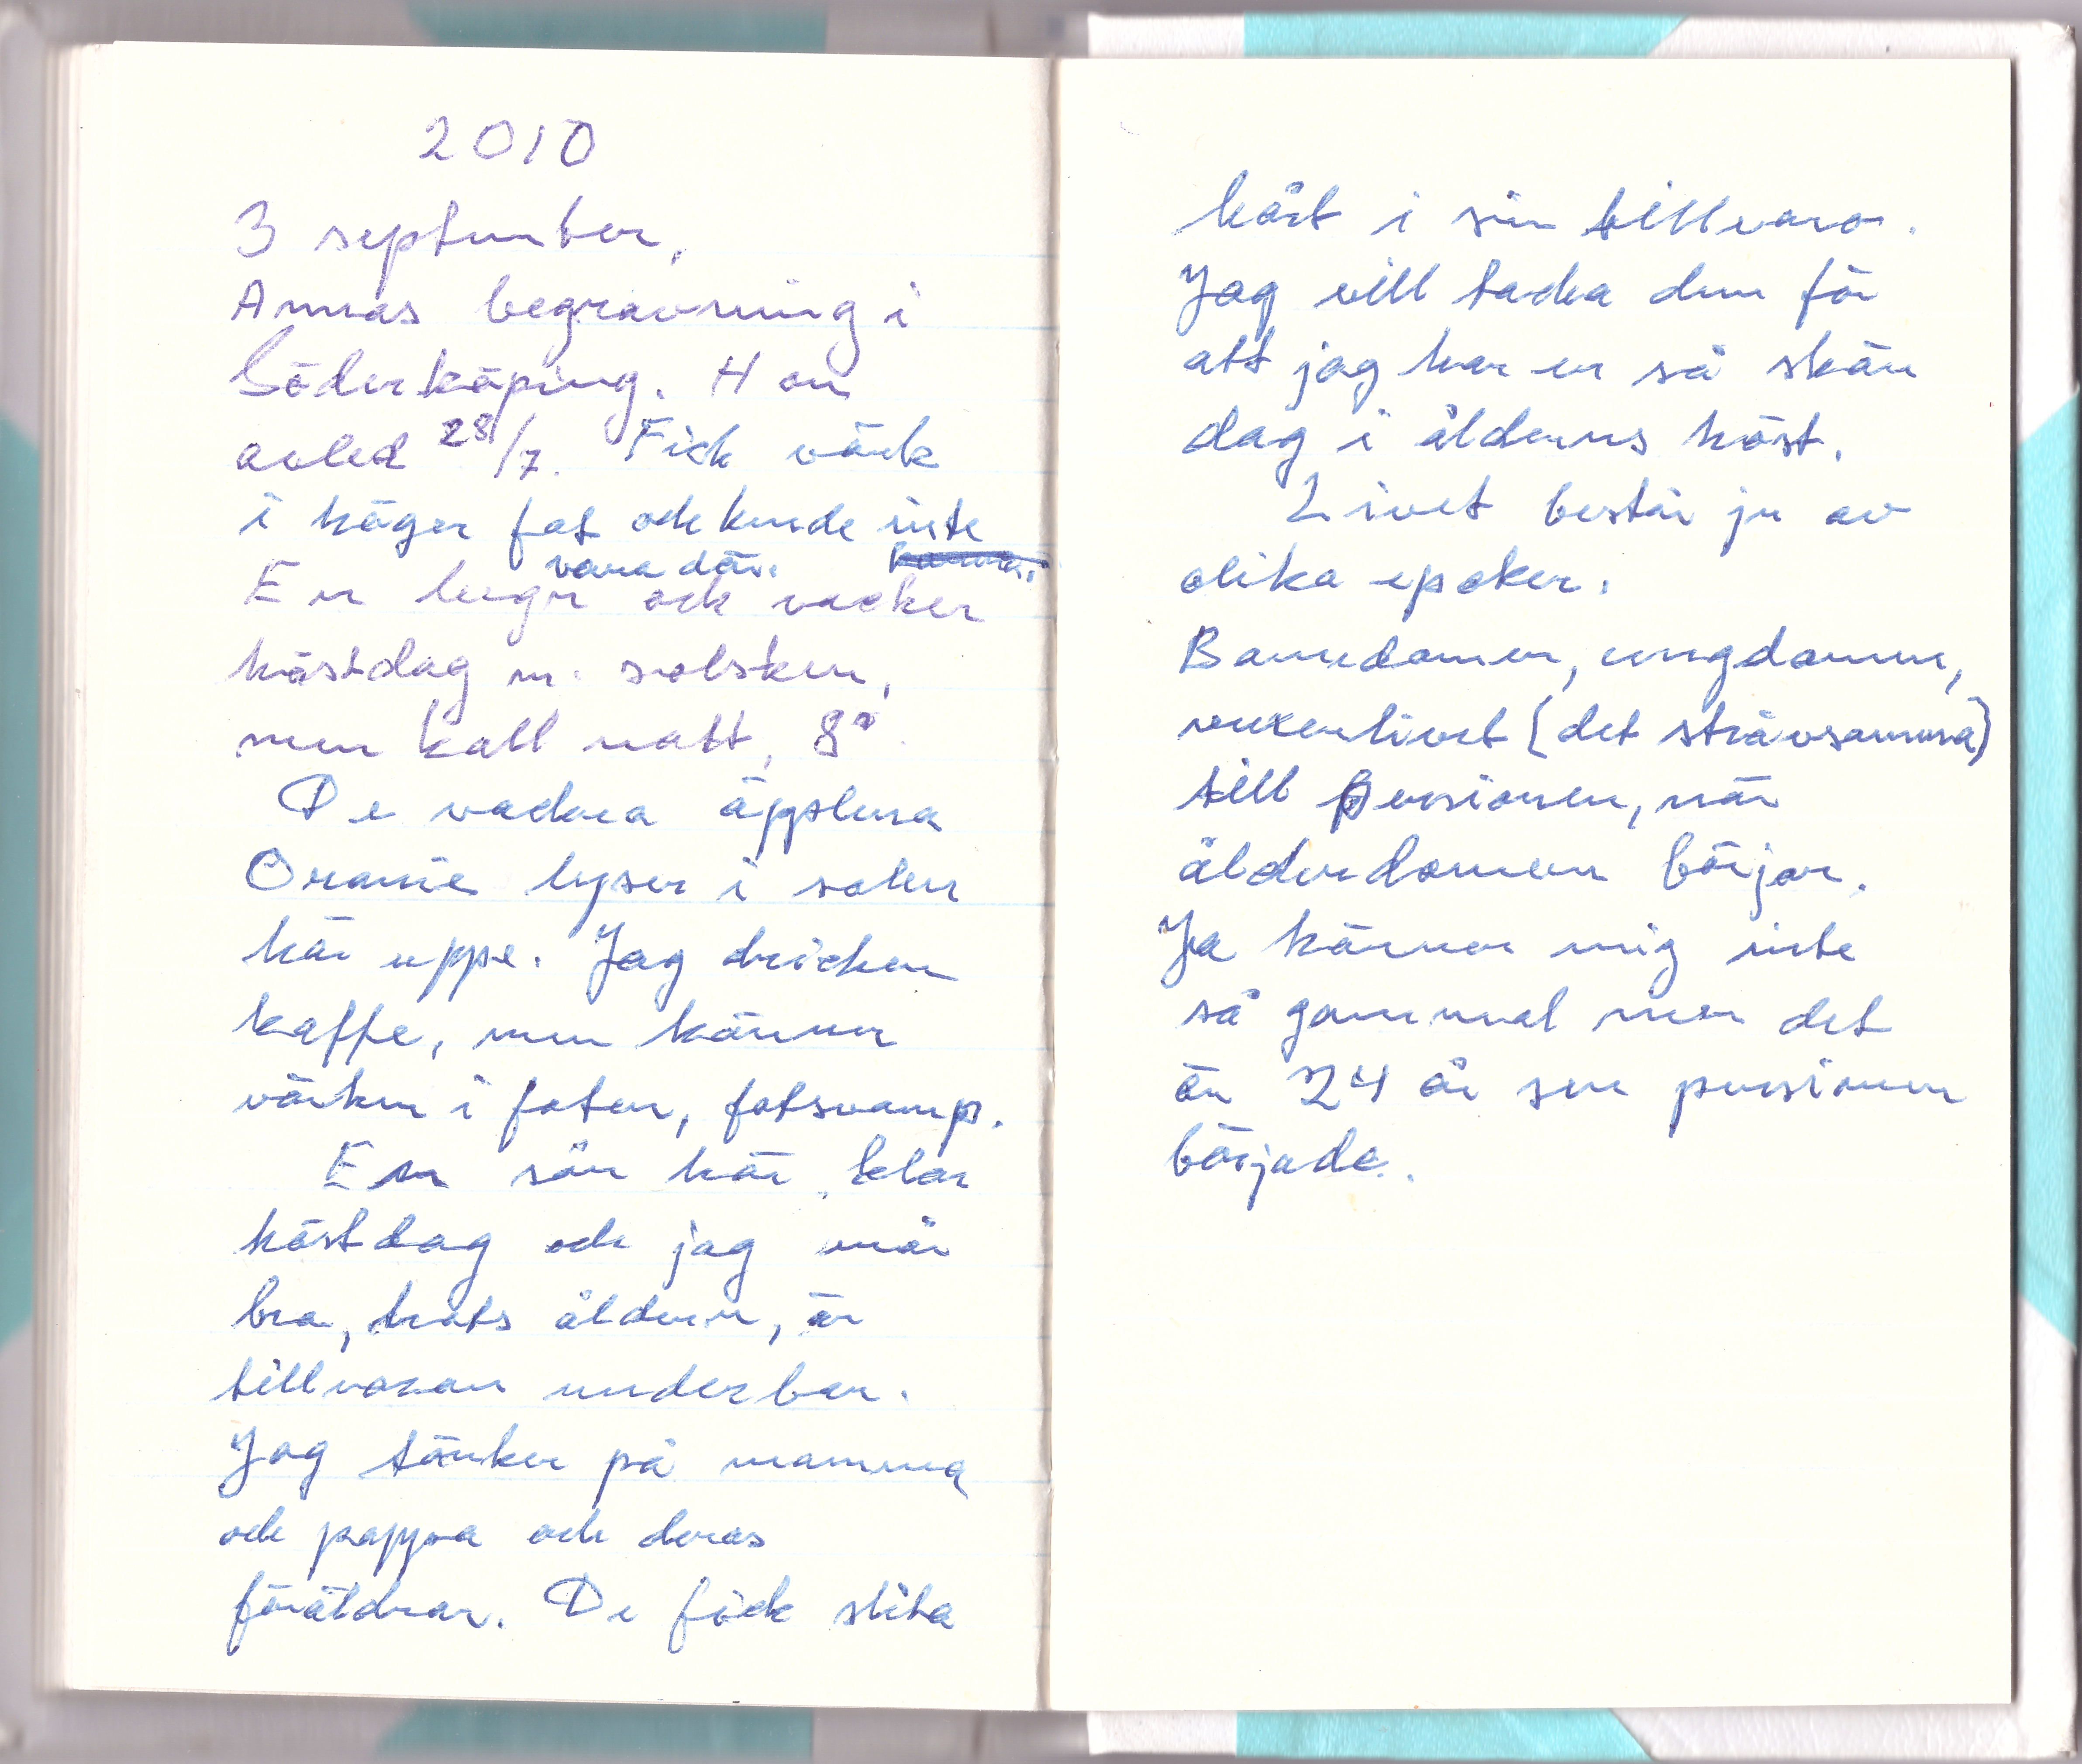 2010
3 september,
Annas begravning i
Söderköping. Hon
avled 28/7. Fick värk
i höger fot och kunde inte
vara där.
En lugn och vacker
höstdag m. solsken,
men kall natt, 8°.
De vackra äpplena
Oranie lyser i solen
här uppe. Jag dricker
kaffe, men känner
värken i foten, fotsvamp.
En sån här klar
höstdag och jag mår
bra, trots åldern, är
tillvaron underbar.
Jag tänker på mamma
och pappa och deras
föräldrar. De fick slita
hårt i sin tillvaro.
Jag vill tacka dem för
att jag har en så skön
dag i ålderns höst.
Livet består ju av
olika epoker.
Barndomen, ungdomen,
vuxenlivet (det strävsamma)
till pensionen, när
ålderdomen börjar.
Ja känner mig inte
så gammal men det
är 24 år sen pensionen
började.